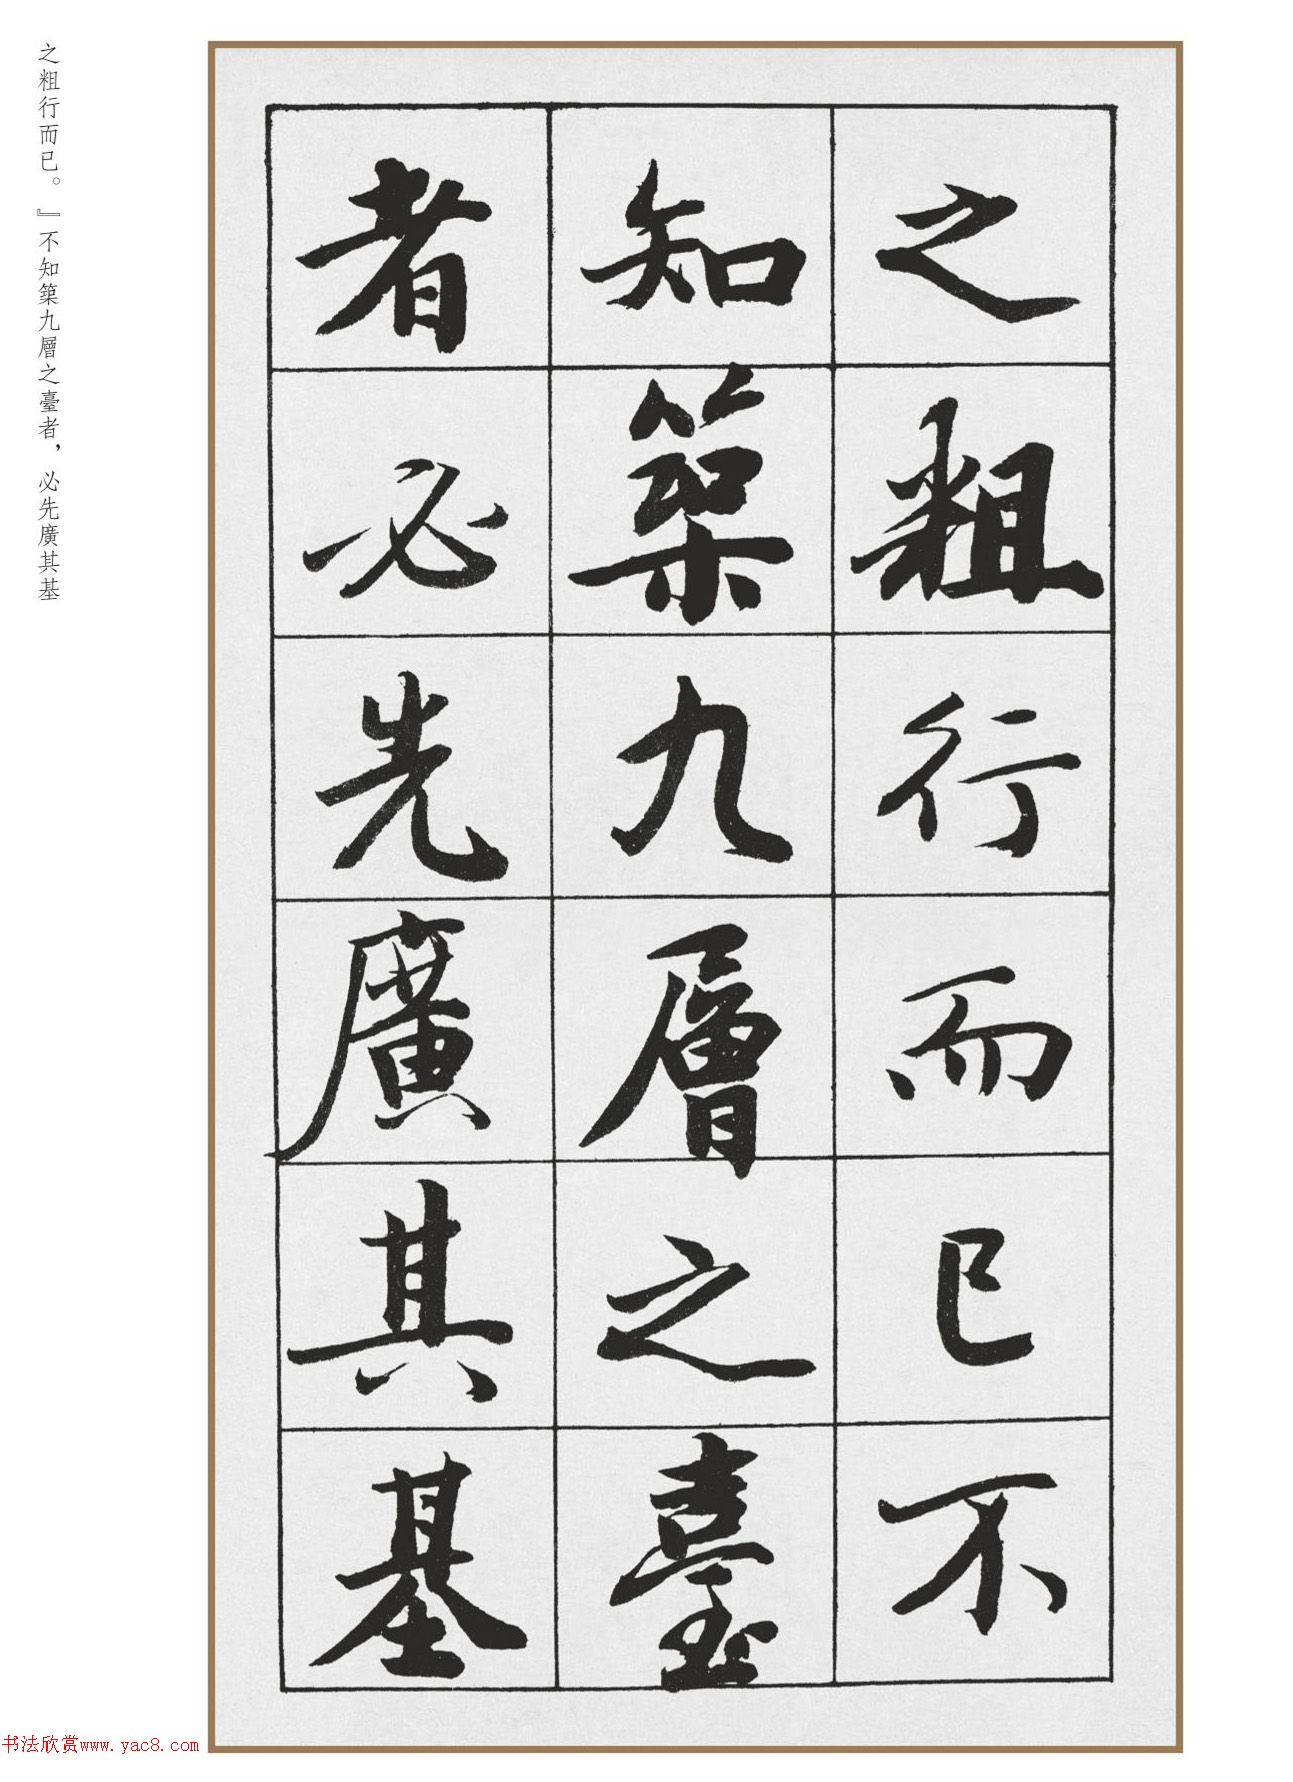 之粗行而已。』不知築九層之臺者，必先廣其基
之粗行而已不
知築九層之臺
者必先廣其基
书法欣赏www.yac8.com